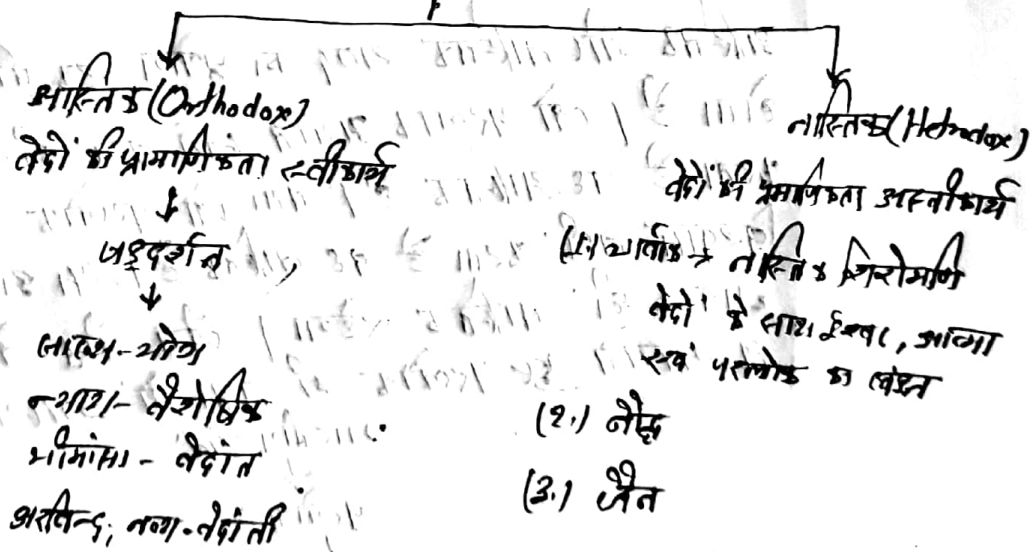 आस्तिक (Orthodox)
वेदों की प्रामाणिकता स्वीकार्य
षड्दर्शन
सांख्य - योग
न्याय - वैशेषिक
मीमांसा - वेदांत
अरविन्द, नव्य-वेदांती
नास्तिक (Hetrodox)
वेदों की प्रमाणिकता अस्वीकार्य
(1.) चार्वाक → नास्तिक शिरोमणि
वेदों के साथ ईश्वर, आत्मा
एवं परलोक का खंडन
(2.) बौद्ध
(3.) जैन